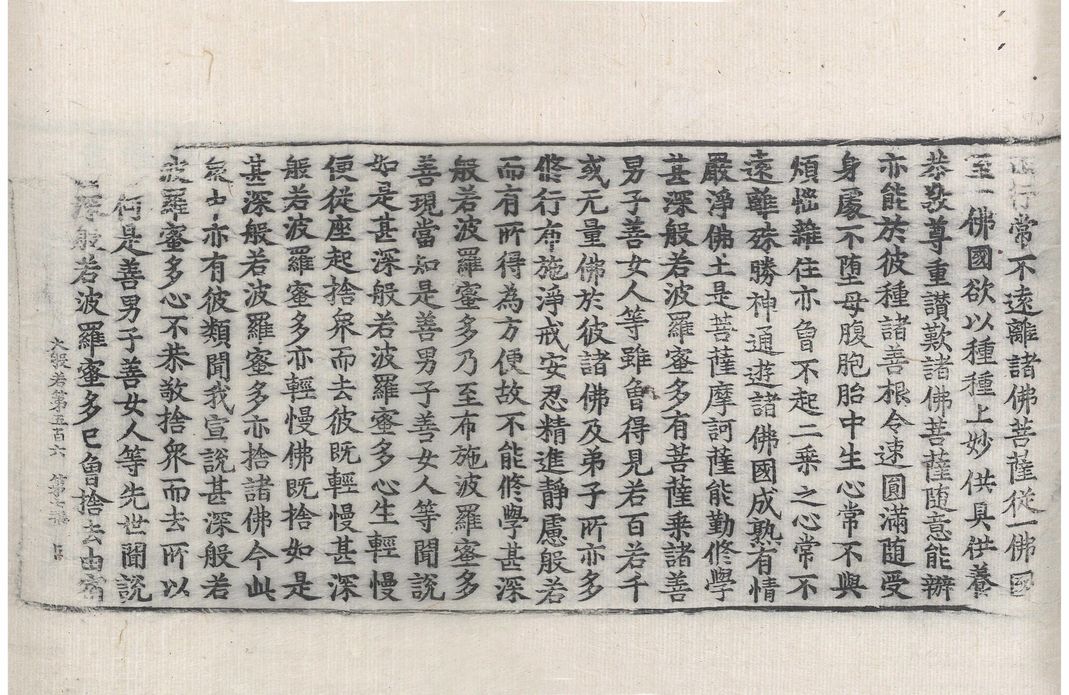 行常不遠離諸佛菩薩從一佛國
至一佛國欲以種種上妙供具供養
恭敬尊重讃歎諸佛菩薩随意能辦
亦能於彼種諸善根令速圓滿随受
身處不堕母腹胞胎中生心常不與
煩惱雜住亦曾不起二乘之心常不
遠離殊勝神通遊諸佛國成熟有情
嚴淨佛土是菩薩摩訶薩能勤修學
甚深般若波羅蜜多有菩薩乘諸善
男子善女人等雖曾得見若百若千
或无量佛於彼諸佛及弟子所亦多
修行布施淨戒安忍精進靜慮般若
而有所得為方便故不能修學甚深
般若波羅蜜多乃至布施波羅蜜多
善現當知是善男子善女人等聞說
如是甚深般若波羅蜜多心生輕慢
便從座起捨衆而去彼既輕慢甚深
般若波羅蜜多亦輕慢佛既捨如是
甚深般若波羅蜜多亦捨諸佛今此
衆中亦有彼類聞我宣說甚深般若
波羅蜜多心不恭敬捨衆而去所以
何是善男子善女人等先世聞說
深般若波羅蜜多已曾捨去由宿
大般若第五百六 第七張